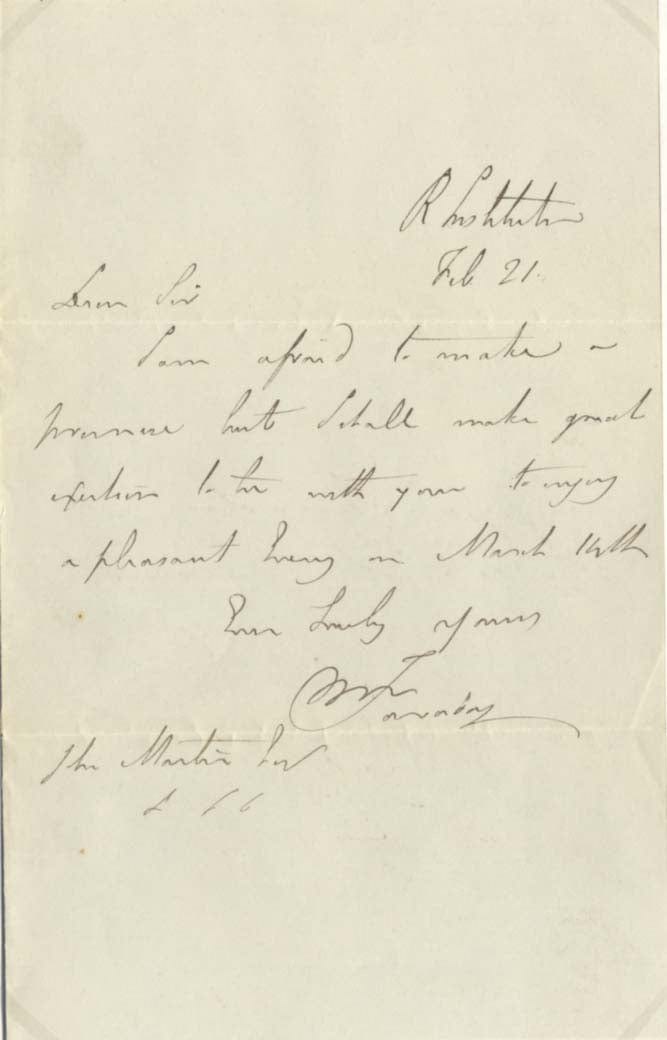 R Institution
Feb 21.
Dear Sir
I am afraid to make a
promise but I shall make great
exertion to be with you to enjoy
a pleasant Evening on March 14th
Ever Truly Yours
M Faraday
Jhn Martin Esq
&c &c &c